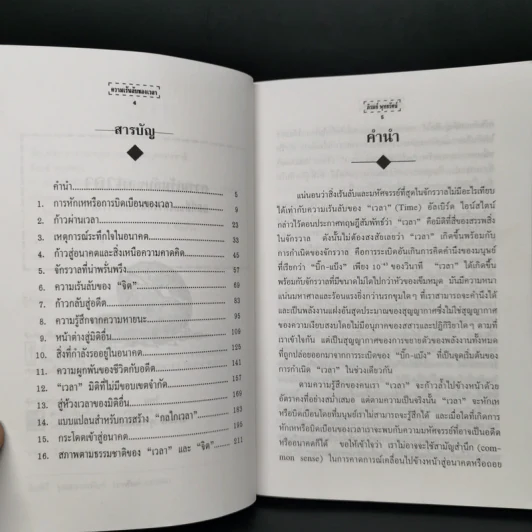 ความเร้นลับของเวลา
4
สารบัญ
คำนำ 5
1. การหักเหหรือการบิดเบือนของเวลา 9
2. ก้าวผ่านเวลา 23
3. เหตุการณ์ระทึกใจในอนาคต 33
4. ก้าวสู่อนาคตและสิ่งเหนือความคาดคิด 45
5. จักรวาลที่น่าพรั่นพรึง 57
6. ความเร้นลับของ “จิต” 69
7. ก้าวกลับสู่อดีต 83
8. ความรู้สึกจากความหายนะ 95
9. หน้าต่างสู่มิติอื่น 109
10. สิ่งที่กำลังรออยู่ในอนาคต
11. ความผูกพันของชีวิตกับอดีต
12. “เวลา” มิติที่ไม่มีขอบเขตจำกัด
13. สู่ห้วงเวลาของมิติอื่น
14. แบบแปลนสำหรับการสร้าง “กลไกเวลา”
15. กระโดดเข้าสู่อนาคต
16. สภาพตามธรรมชาติของ “เวลา” และ “จิต” 211
5
คำนำ
แน่นอนว่าสิ่งเร้นลับและมหัศจรรย์ที่สุดในจักรวาลไม่มีอะไรเทียบ
ได้เท่ากับความเร้นลับของ “เวลา” (Time) อัลเบิร์ต ไอน์สไตน์
กล่าวไว้ตอนประกาศทฤษฎีสัมพัทธ์ว่า “เวลา” คือมิติที่สี่ของสรรพสิ่ง
ในจักรวาล ดังนั้นไม่ต้องสงสัยเลยว่า “เวลา” เกิดขึ้นพร้อมกับ
การกำเนิดของจักรวาล คือการระเบิดอันเกินการคิดคำนึงของมนุษย์
ที่เรียกว่า “บิ๊ก-แบ็ง” เพียง ของวินาที “เวลา” ได้เกิดขึ้น
พร้อมกับจักรวาลที่มีขนาดไม่โตไปกว่าหัวของเข็มหมุด มันมีความหนา
แน่นมหาศาลและร้อนแรงยิ่งกว่านรกขุมใด ๆ ที่เราสามารถจะคำนึงได้
และเป็นพลังงานแฝงอันสุดประมาณของสุญญากาศซึ่งไม่ใช่สุญญากาศ
ของความเงียบสงบโดยไม่มีอนุภาคของสสารและปฏิกิริยาใด ๆ ตามที่
เราเข้าใจกัน แต่เป็นสุญญากาศของการขยายตัวของพลังงานทั้งหมด
ที่ถูกปล่อยออกมาจากการระเบิดของ “บิ๊ก-แบ็ง” ที่เป็นจุดเริ่มต้นของ
การกำเนิด “เวลา” ในช่วงเดียวกัน
ตามความรู้สึกของคนเรา “เวลา” จะก้าวล้ำไปข้างหน้าด้วย
อัตราคงที่อย่างสม่ำเสมอ แต่ตามความเป็นจริงนั้น “เวลา” จะหักเห
หรือบิดเบือนโดยที่มนุษย์เราไม่สามารถจะรู้สึกได้ และเมื่อใดที่เกิดการ
หักเหหรือบิดเบือนของเวลาเราจะพบกับความมหัศจรรย์ที่อาจเป็นอดีต
หรืออนาคตก็ได้ ขอให้เข้าใจว่า เราไม่อาจจะใช้สามัญสำนึก (com-
mon sense) ในการคาดการณ์เคลื่อนไปข้างหน้าสู่อนาคตหรือถอย